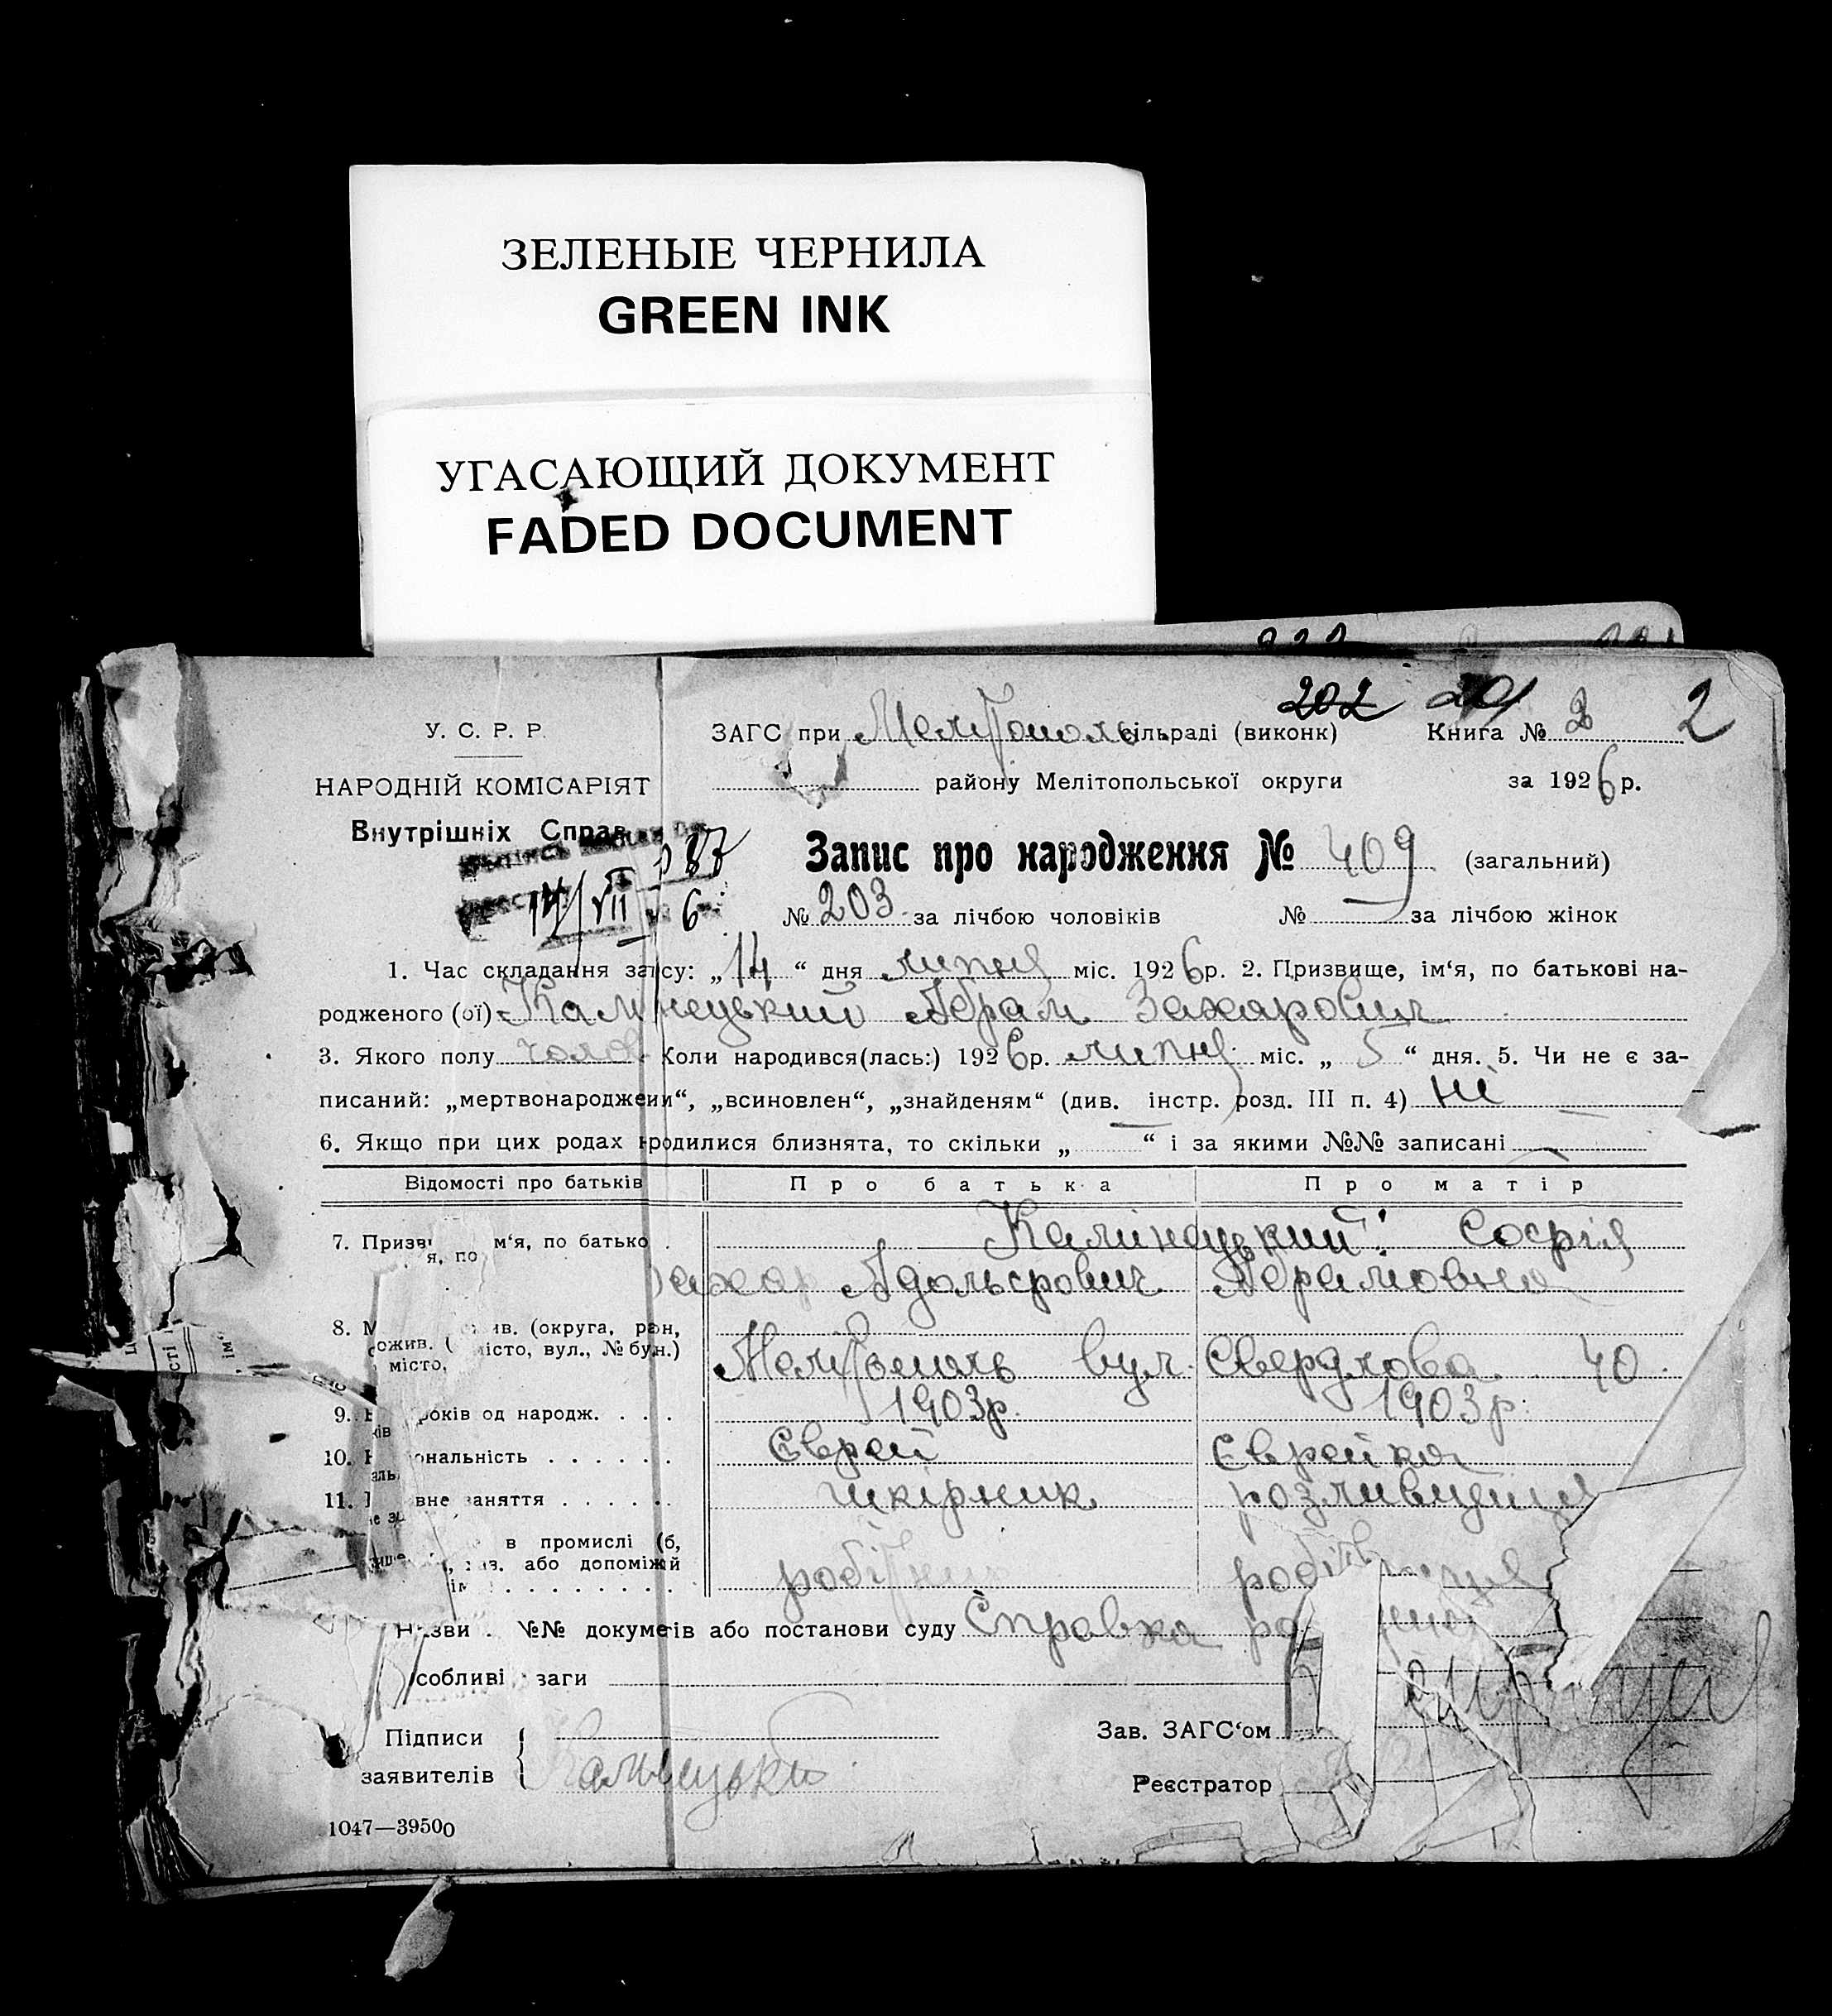 ЗЕЛЕНЫЕ ЧЕРНИЛА
GREEN INK
УГАСАЮЩИЙ ДОКУМЕНТ
FADED DOCUMENT
202 2
У. С. Р. Р. ЗАГС при Мелітополь сільраді (виконк) Книга №
НАРОДНІЙ КОМІСАРІЯТ району Мелітопольської округи за 1926 р.
Внутрішніх Справ
Запис про народження № 409 (загальний)
14/VII 6
№ 203 за лічбою чоловіків № — за лічбою жінок
1. Час складання запису: „14“ дня липня міс. 1926 р. 2. Призвище, ім‘я, по батькові на-
родженого (ої) Камінецький Абрам Захарович
3. Якого полу чолов Коли народився(лась:) 1926 р. липня міс. „5“ дня. 5. Чи не є за-
писаний: „мертвонароджений“, „всиновлен“, „знайденям“ (див. інстр. розд. III п. 4) ні
6. Якщо при цих родах вродилися близнята, то скільки „—“ і за якими №№ записані —
Відомості про батьків Про батька Про матір
7. Призв м‘я, по батько Камінецький: Софія
я, по
Захар Адольфович Абрамовна
8. М ив. (округа, ран,
ожив. ( місто, вул., № бун.) Мелітополь вул. Свердлова 40.
місто,
9. років од народж. . . . 1903 р. 1903 р.
10. ональність . . . . . . Єврей Єврейка
11. вне заняття . . . . . . шкірник розливщиця
в промислі (б,
аз. або допоміжй
ім . . . . . . . . . робітник робітниця
Назви №№ документів або постанови суду Справка
собливі ваги
Підписи Зав. ЗАГС‘ом
заявителів Реєстратор
1047—39500